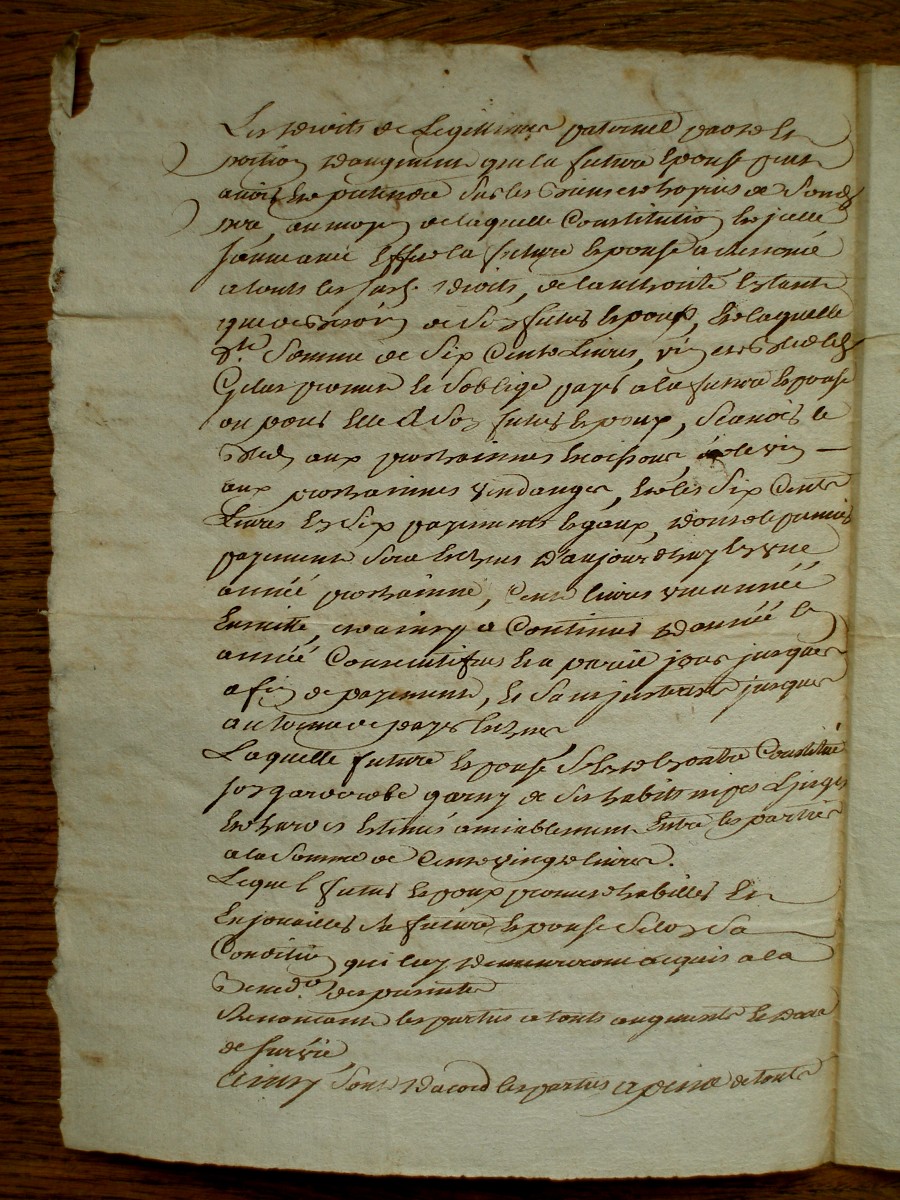 Les droits de Legitimes paternel part et
portion d'augment que la future Epouse peut
avoir et pretendre sur les biens et hoyries de
pere, au moyen de laquelle Constitution et icelle
la future Epouse a renoncé
a touts les susd. droits, de l'authorité
de son futur Epoux, et laquelle
dte. Somme de Six Cents Livres, vin et bled led.
promet et s'oblige payer a la future Epouse
ou pour Elle a son futur Epoux, scavoir le
bled aux prochaines moissons et le vin
aux prochaines vendanges, et les Six Cents
Livres en Six payements Egaux, dont le premier
payement sera d'aujourdhuy en une
année prochaine, Cent livres une année
Ensuitte, et ainsy a Continuer d'année en
année Consecutifues et a pareil jour jusques
a fin de payement, et sans jusques
au terme de payer
Laquelle future Epouse s'est en outre Constitué
son garderobe garny de ses habits nipes Linges
et hardes Estimés amiablement Entre les parties
a la Somme de Cent vingt livres.
Lequel futur Epoux promet habiller et
Enjouailler sa future Epouse selon sa
Condition qui luy demeureront acquis a la
des presentes
Renoncant les parties a touts augments et
de survie
Ainsy sont d'acord les parties a peine de touts